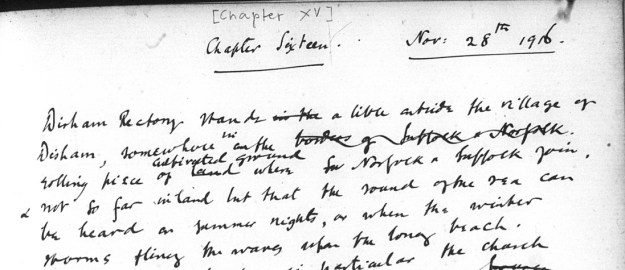 [Chapter XV]
Chapter Sixteen. Nov: 28th 1916.
Disham Rectory stands in the a little outside the village of
Disham, somewhere in on the borders of Suffolk & Norfolk.
cultivated ground
rolling piece of land where Norfolk & Suffolk join,
& not so far inland but that the sound of the sea can
be heard on summer nights, or when the winter
storms fling the waves upon the long beach.
in particular the church